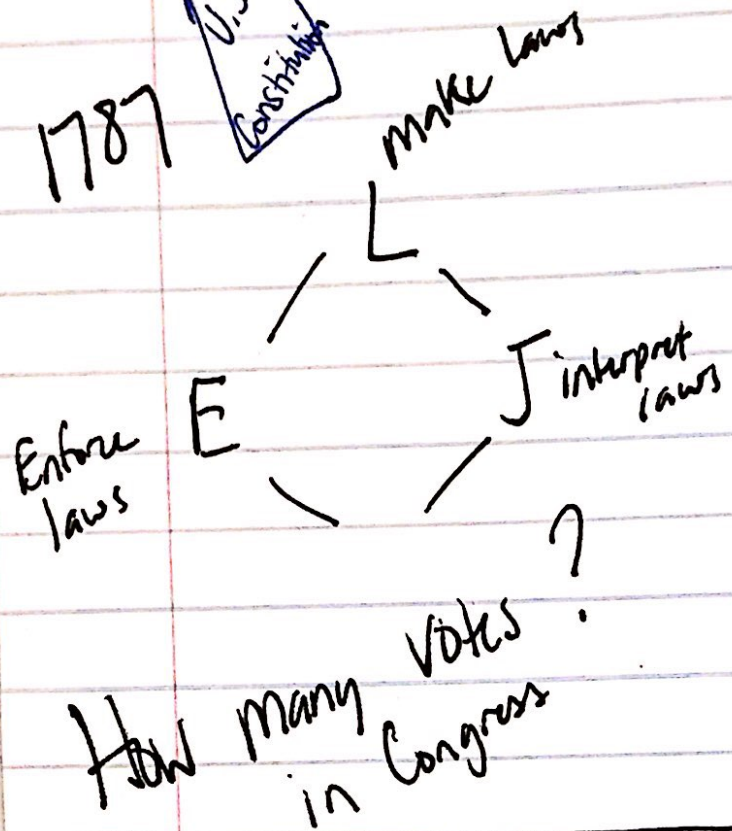 1787
U.S
Constitution
make laws
L
E
J interpret
laws
Enforce
laws
How many votes?
in Congress